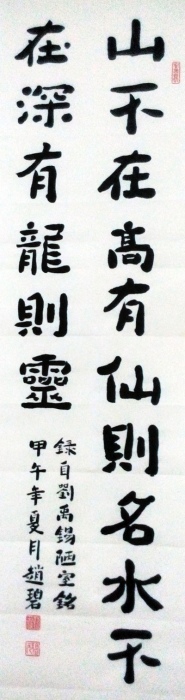 山不在高有仙則名水不
在深有龍則靈
録自劉禹錫陋室銘
甲午年夏月趙碧